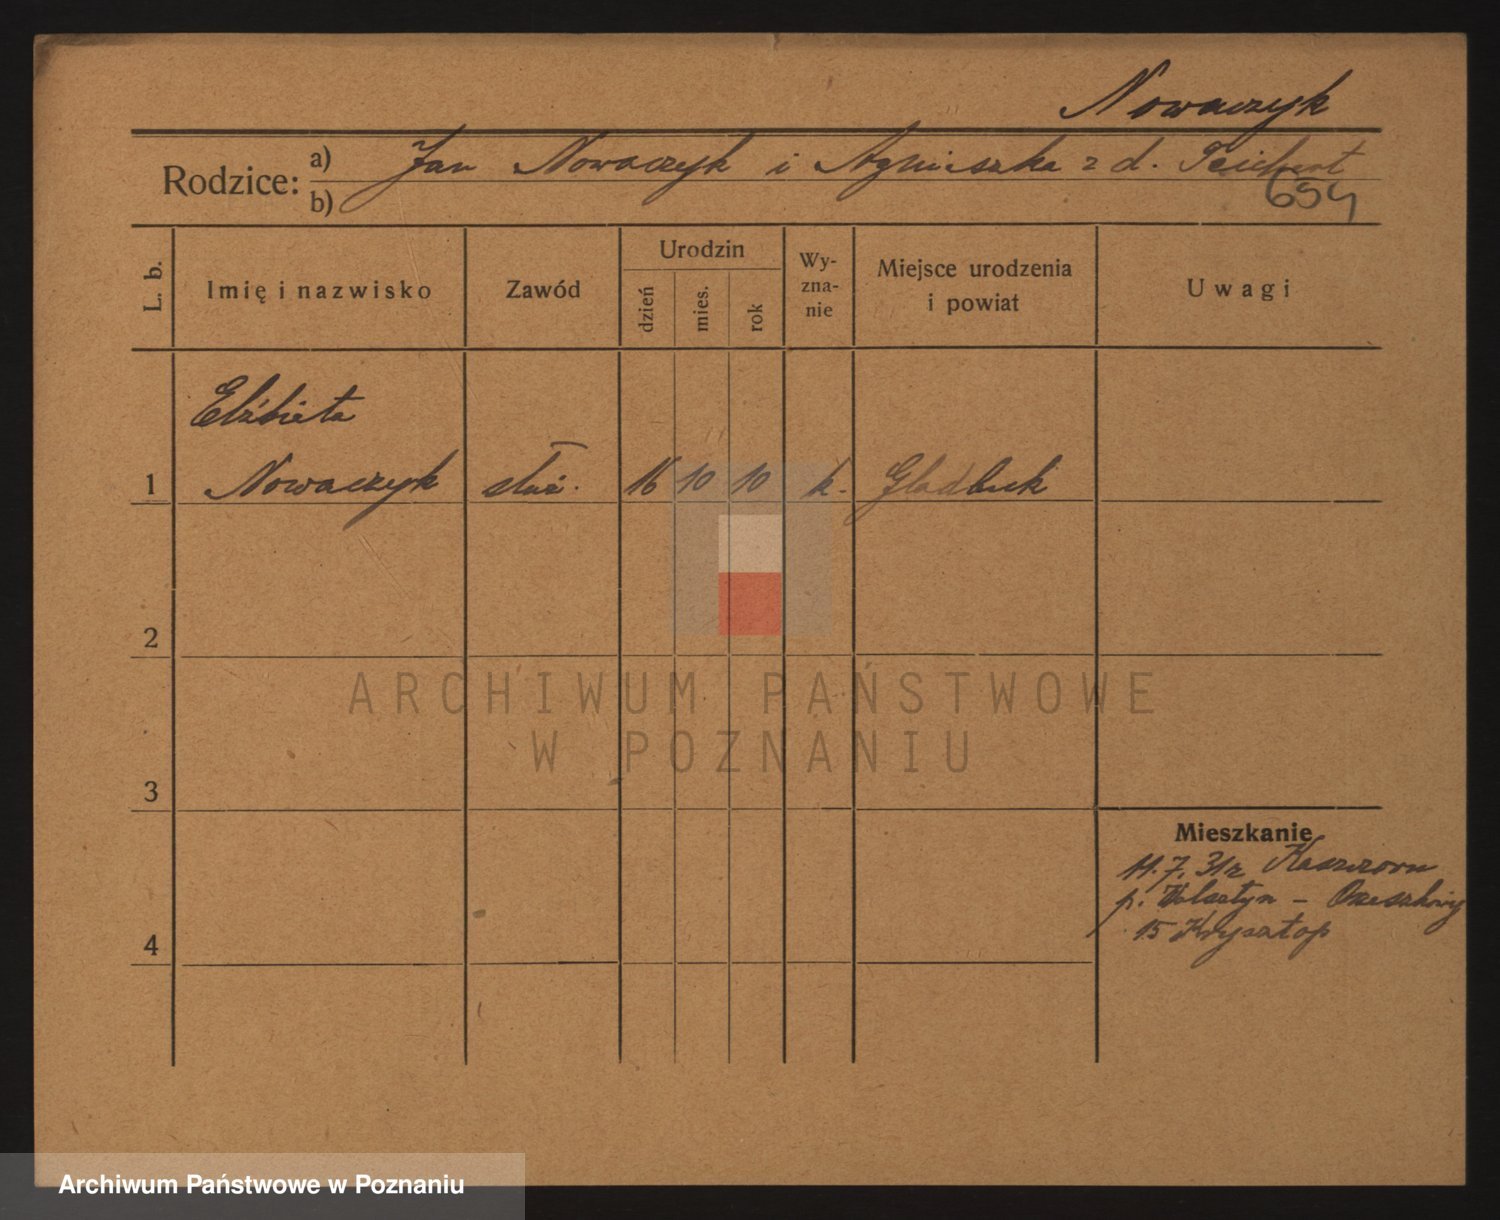 Nowaczyk
Rodzice: a) Jan Nowaczyk i Agnieszka z d. Teichert
b) 654
L. b. Imię i nazwisko Zawód Urodzin dzień mies. rok Wy-zna-nie Miejsce urodzenia i powiat Uwagi
Elżbieta
1 Nowaczyk służ. 16 10 10 k. Gladbek
2
ARCHIWUM PAŃSTWOWE
W POZNANIU
3
Mieszkanie
11.7.31r Kaszczorn
p. Wolsztyn – Orzeszkowej
4 15 Krysztop
Archiwum Państwowe w Poznaniu